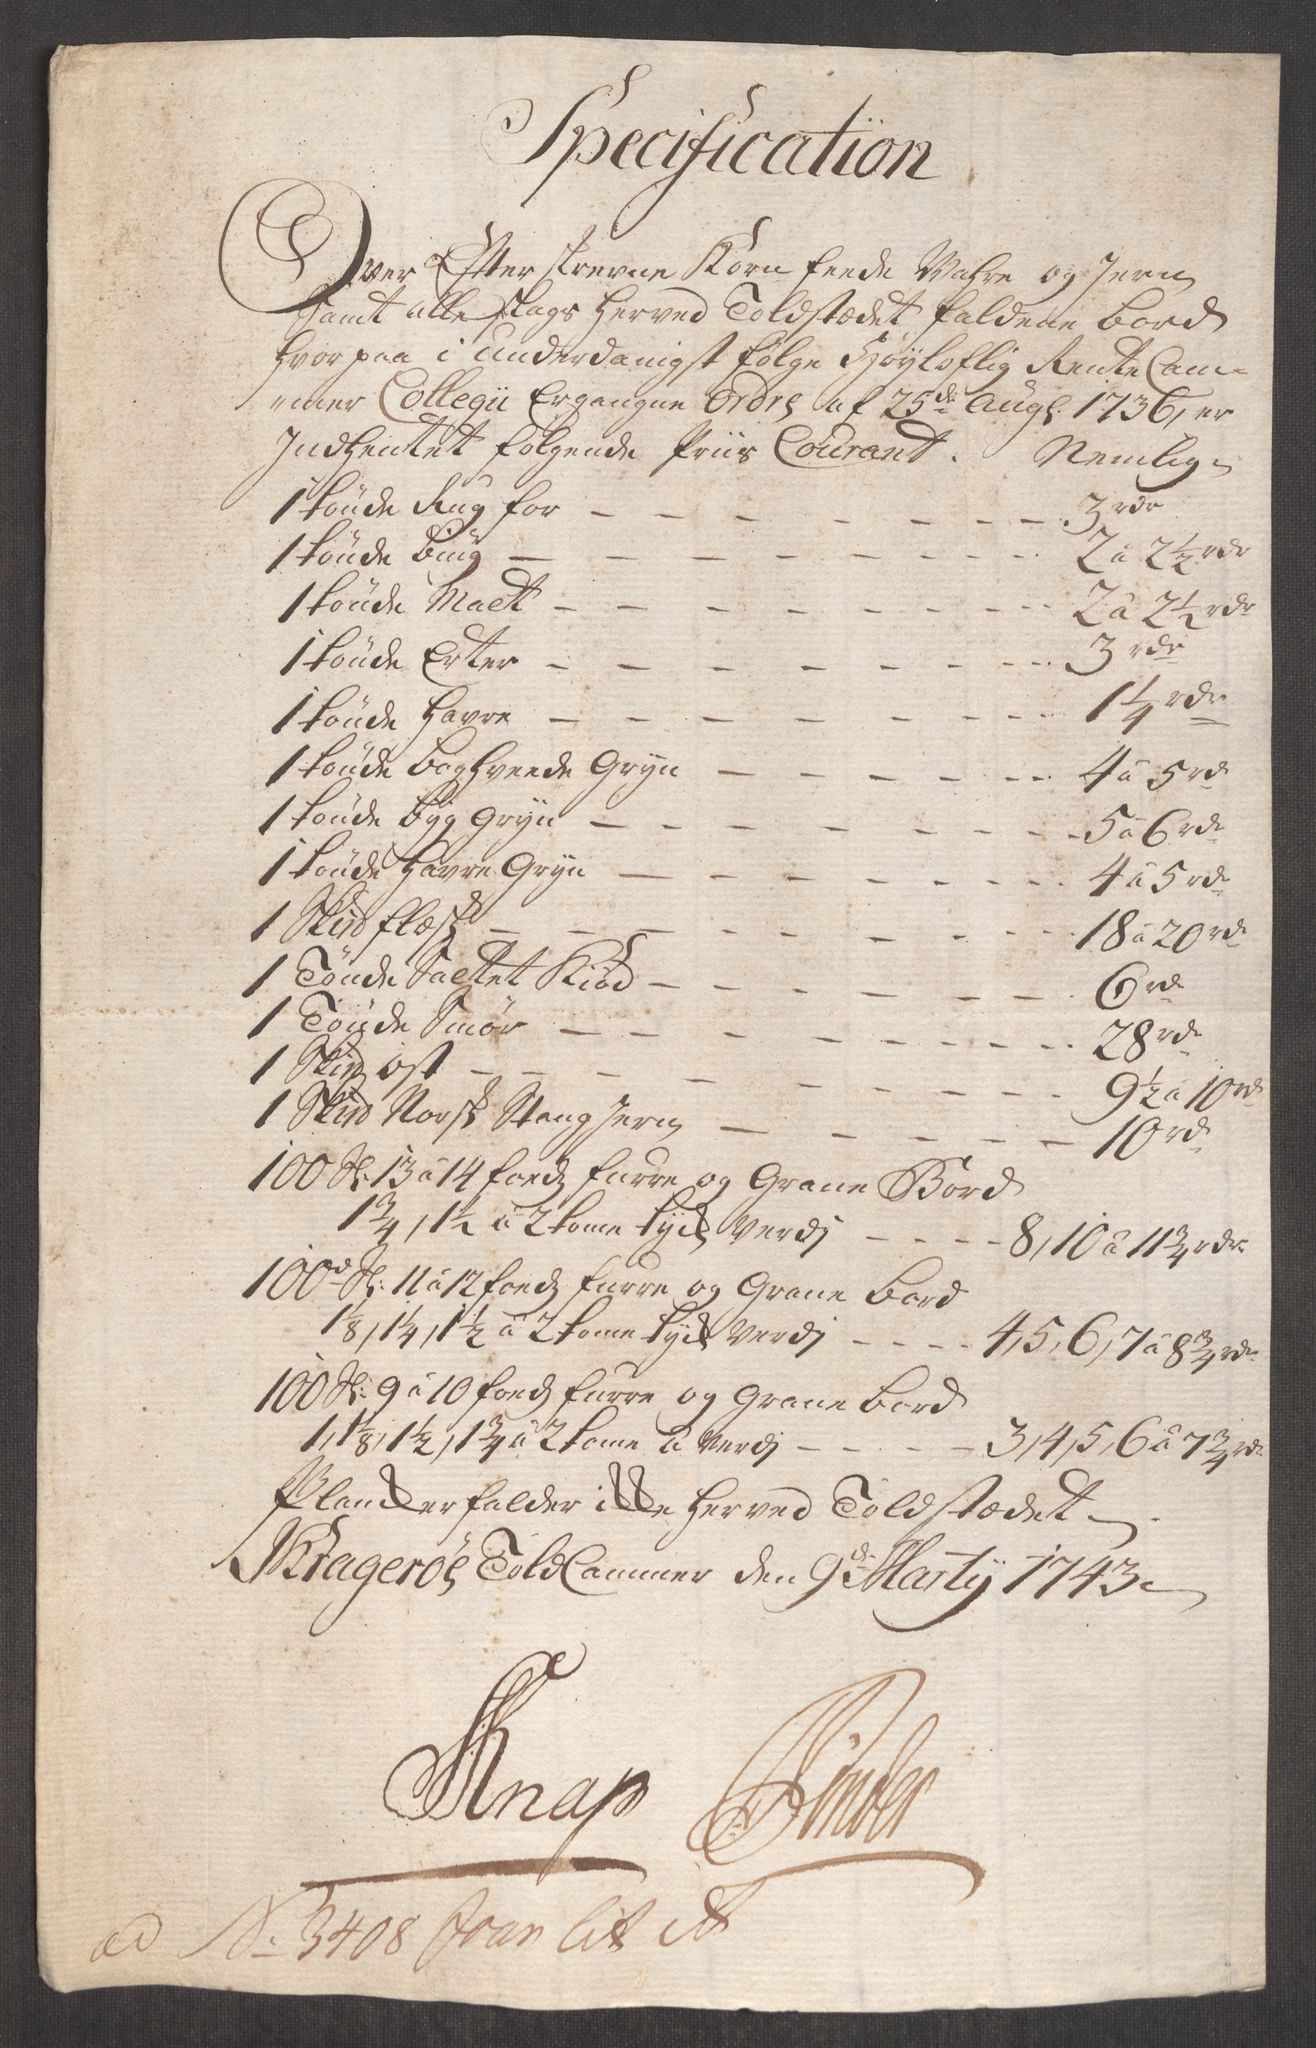 Specification
Over Efter skrevne Korn feede Wahre og Jern
samt alle slags herved Toldstædet faldene bord
hvorpaa i Underdanigst følge Höyloflig Rente Cam-
mer Collegii Ergangne Ordre af 25de Augs. 1736, er
Indhentet følgende Priis Courant. Nemlig
1 tönde Rug for — 3 rdr
1 tönde Biug — 2 â 2½ rdr
1 tönde Malt — 2 â 2½ rdr
1 tönde Erter — 3 rdr
1 tönde Havre — 1¼ rdr
1 tönde boghveede Gryn — 4 â 5 rd
1 tönde byg Gryn — 5 â 6 rdr
1 tönde Havre Gryn — 4 â 5 rdr
1 Skpd flæsk — 18 â 20 rdr
1 Tönde Saltet Kiöd — 6 rd
1 Tönde Smör — 28 rdr
1 Skpd ost — 9½ â 10 rdr
1 Skpd Norsk Stang Jern — 10 rdr
100 St: 13 â 14 foeds furre og Grane Bord
1¾, 1½ â 2 tome tyck verdj — 8, 10 â 11¾ rdr
100d St: 11 â 12 foeds furre og Grane bord
1⅛, 1¼, 1½ â 2 tome tyck verdj — 4, 5, 6, 7 â 8¾ rdr
100 St: 9 â 10 foeds furre og Grane bord
1, 1⅛, 1½, 1¾ â 2 tome â verdj — 3, 4, 5, 6 â 7¾ rdr
Plancker falder icke herved Toldstædet
Krageröe Told Cammer den 9de Marty 1743
Knap
ad No: 3408 lit